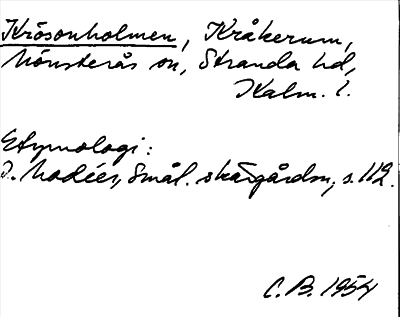 Krösonholmen, Kråkerum,
Mönsterås sn, Stranda hd,
Kalm. l.
Etymologi:
I. Modéer, Smål. skärgårdsn, s. 112.
C. B. 1954